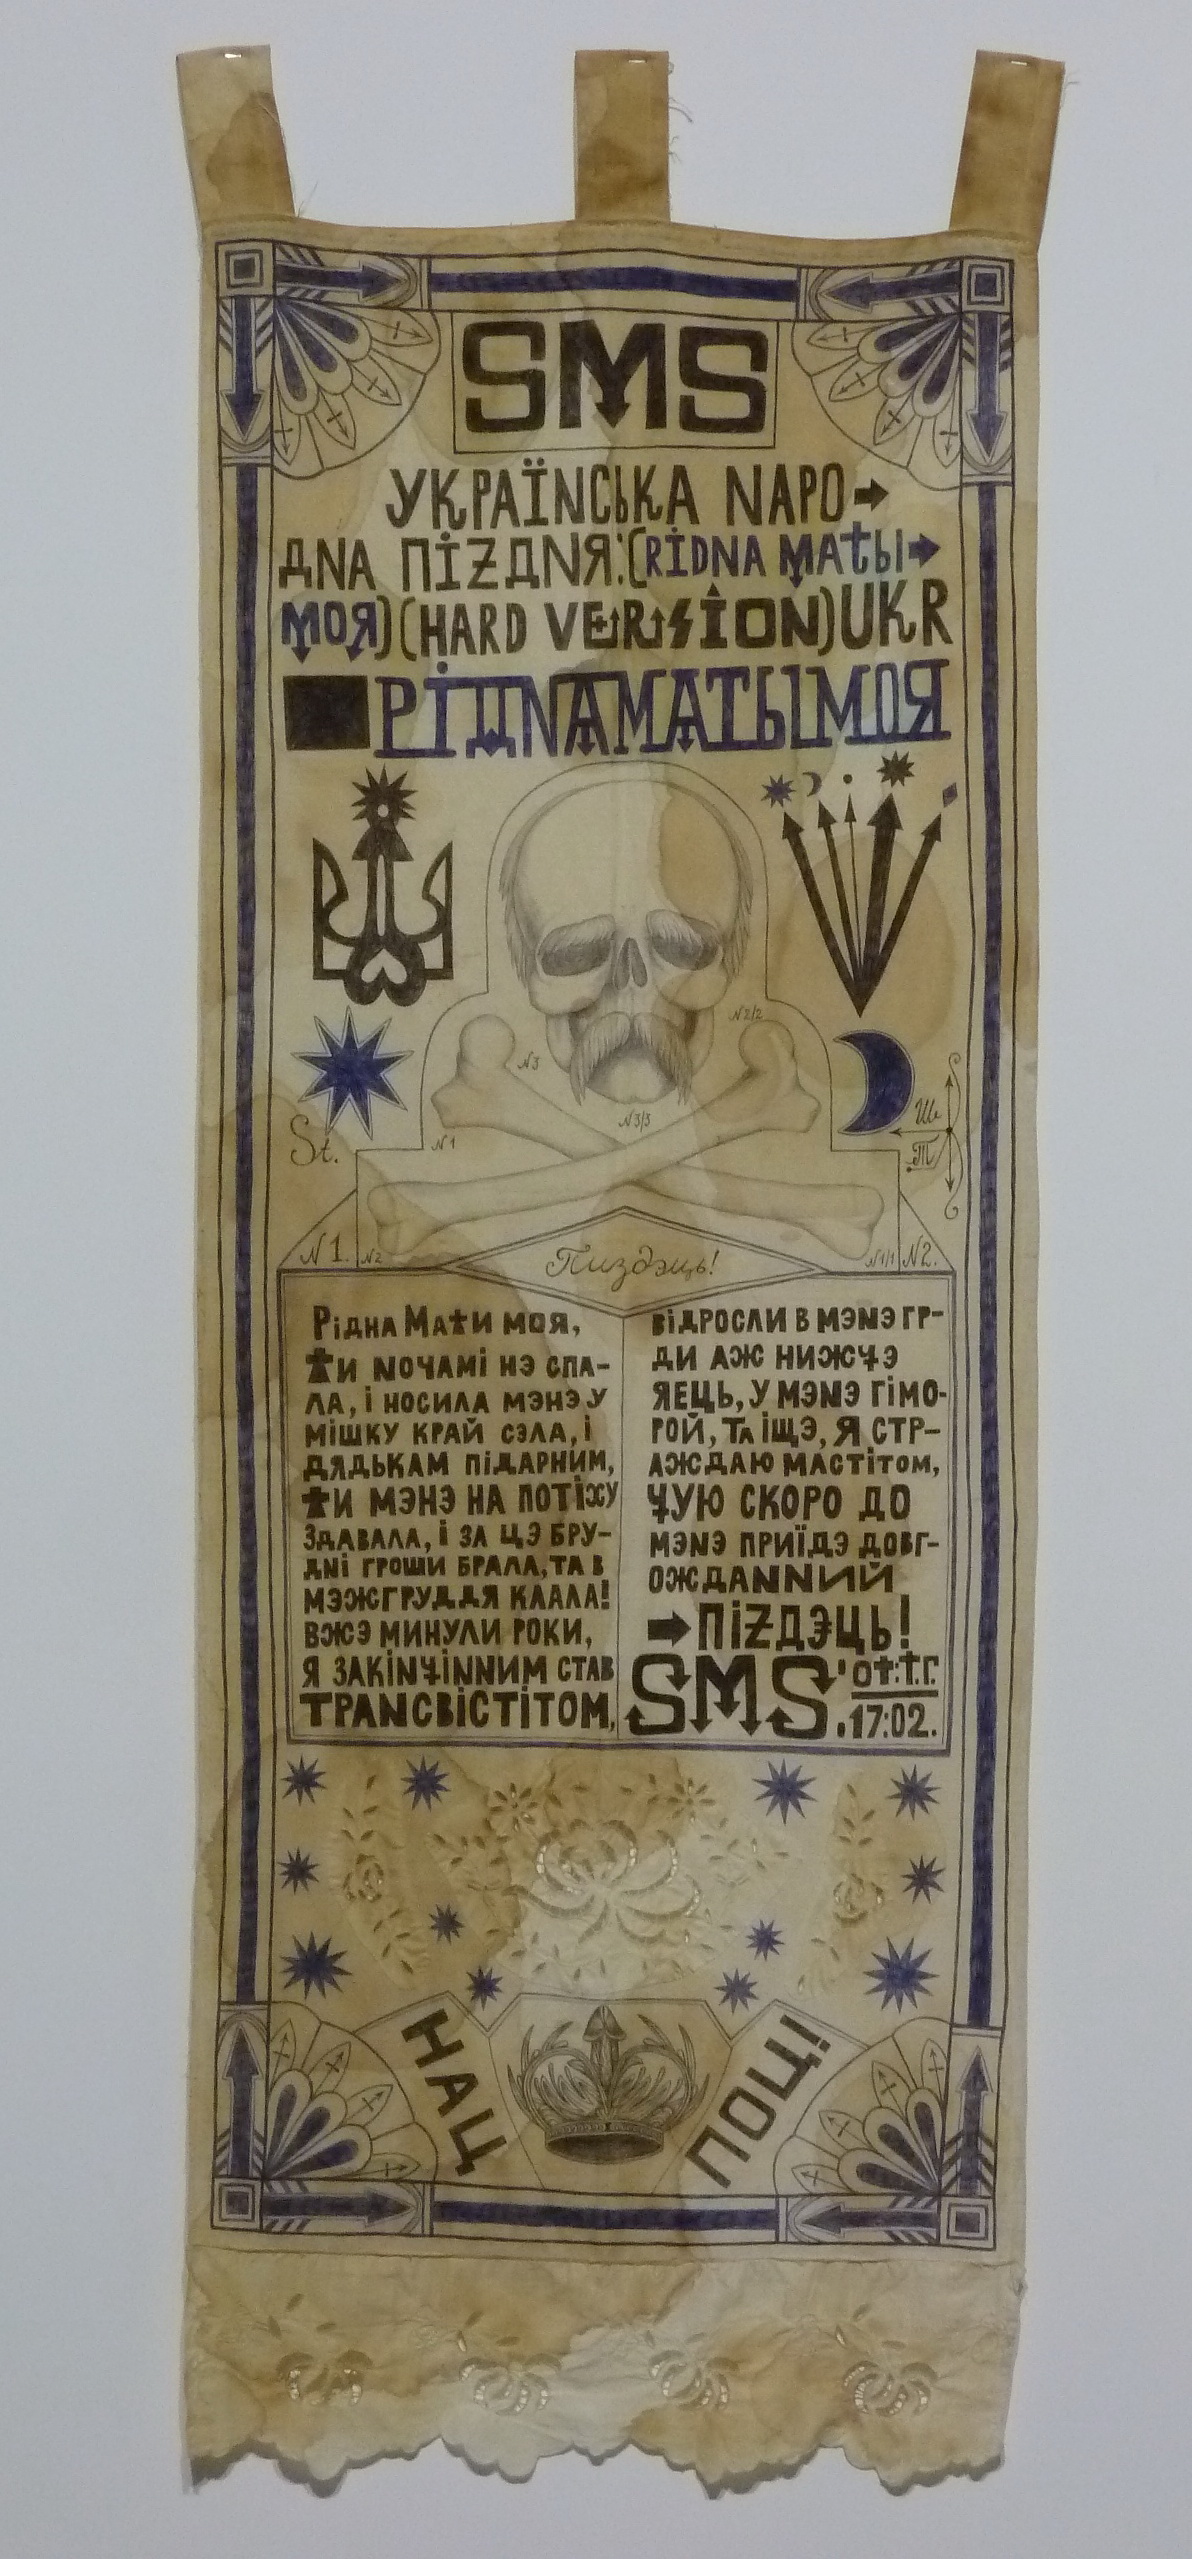 SMS
УКРАЇNСЬКА NАРО➡
ДNА ПіZДNЯ:(RiDNA MATЫ➡
МОЯ)(HARD VERSION)UKR
РіДNАМАТЫМОЯ
N3
N2/2
N3/3
Ше
Т
N1
St.
N1. N2 N1/1 N2.
Пиздэць!
Рідна Мати моя,
ти NОЧАМі НЭ СПА-
ЛА, і НОСИЛА МЭНЭ У
МіШКУ КРАЙ СЭЛА, і
ДЯДЬКАМ ПіДАРНИМ,
ТИ МЭНЭ НА ПОТіХУ
ЗДАВАЛА, і ЗА ЦЭ БРУ-
ДNі ГРОШИ БРАЛА, ТА В
МЭЖГРУДДЯ КЛАЛА!
ВЖЭ МИНУЛИ РОКИ,
Я ЗАКіNЧіNNИМ СТАВ
ТРАNСВіСТіТОМ,
ВіДРОСЛИ В МЭNЭ ГР-
ДИ АЖ НИЖЧЭ
ЯЕЦЬ, У МЭNЭ ГіМО-
РОЙ, ТА іЩЭ, Я СТР-
АЖДАЮ МАСТіТОМ,
ЧУЮ СКОРО ДО
МЭNЭ ПРИЇДЭ ДОВГ-
ОЖДАNNИЙ
➡ПіZДЭЦЬ!
SMS' от:т.г.
.17:02.
НАЦ ПОЦі